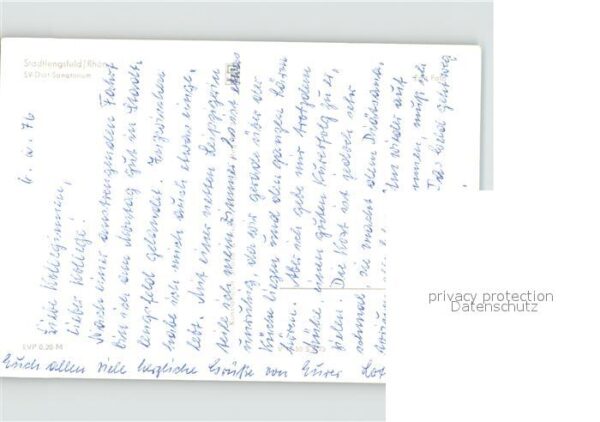 Stadtlengsfeld/Rhön
SV-Diät-Sanatorium
6. 2. 76
Liebe Kolleginnen,
lieber Kollege!
Nach einer anstrengenden Fahrt
bin ich am Montag gut in Stadt-
lengsfeld gelandet. Inzwischen
habe ich mich auch etwas einge-
lebt. Mit einer netten Leipzigerin
teile ich mein Zimmer, es ist etwas
unruhig, da wir gerade über der
Küche liegen und den ganzen Lärm
hören. Aber ich gebe mir trotzdem
Mühe, einen guten Kurerfolg zu er-
zielen. Die Kost ist jedoch sehr
schmal, sie macht dem Diät
wieder auf
muß ich
Euch allen viele herzliche Grüße von Eurer
EVP 0,20 M
privacy protection
Datenschutz